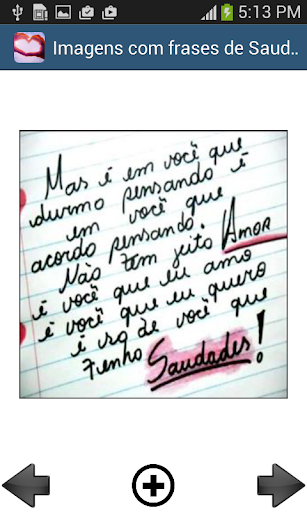 5:13 PM
Imagens com frases de Saud..
Mas é em você que
durmo pensando é
em você que
acordo pensando.
Não tem jeito Amor
é você que eu amo
é você que eu quero
é só de você que
Tenho Saudades!